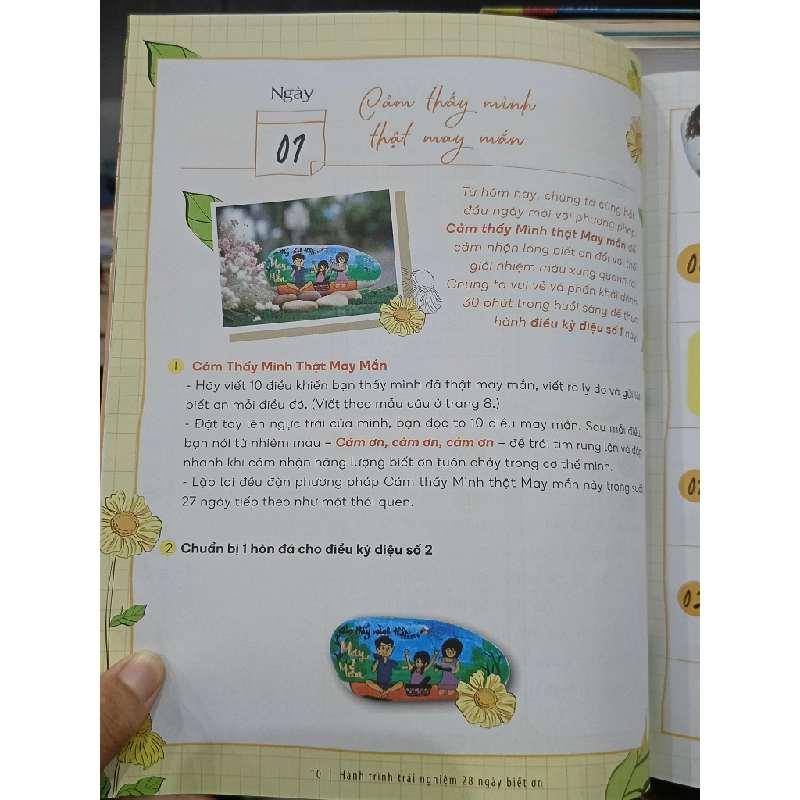 Ngày
01
Cảm thấy mình
thật may mắn
Từ hôm nay, chúng ta cùng bắt
đầu ngày mới với phương pháp
Cảm thấy Mình thật May mắn để
cảm nhận lòng biết ơn đối với thế
giới nhiệm màu xung quanh ta.
Chúng ta vui vẻ và phấn khởi dành
30 phút trong buổi sáng để thực
hành điều kỳ diệu số 1 này.
May
Mắn
1 Cảm Thấy Mình Thật May Mắn
- Hãy viết 10 điều khiến bạn thấy mình đã thật may mắn, viết ra lý do và gửi
biết ơn mỗi điều đó. (Viết theo mẫu câu ở trang 8.)
- Đặt tay lên ngực trái của mình, bạn đọc to 10 điều may mắn. Sau mỗi điều,
bạn nói từ nhiệm màu – Cảm ơn, cảm ơn, cảm ơn – để trái tim rung lên và đập
nhanh khi cảm nhận năng lượng biết ơn tuôn chảy trong cơ thể mình.
- Lặp lại đều đặn phương pháp Cảm thấy Mình thật May mắn này trong suốt
27 ngày tiếp theo như một thói quen.
2 Chuẩn bị 1 hòn đá cho điều kỳ diệu số 2
Cảm thấy mình thật
May
Mắn
10 | Hành trình trải nghiệm 28 ngày biết ơn